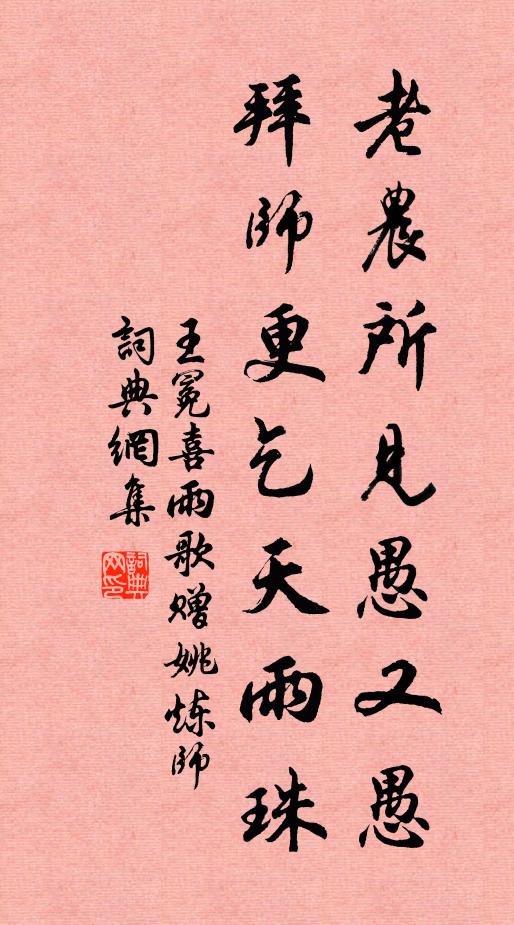 老農所見愚又愚
拜師更乞天雨珠
王冕喜雨歌贈姚炼師
詞典網集
詞典
网印